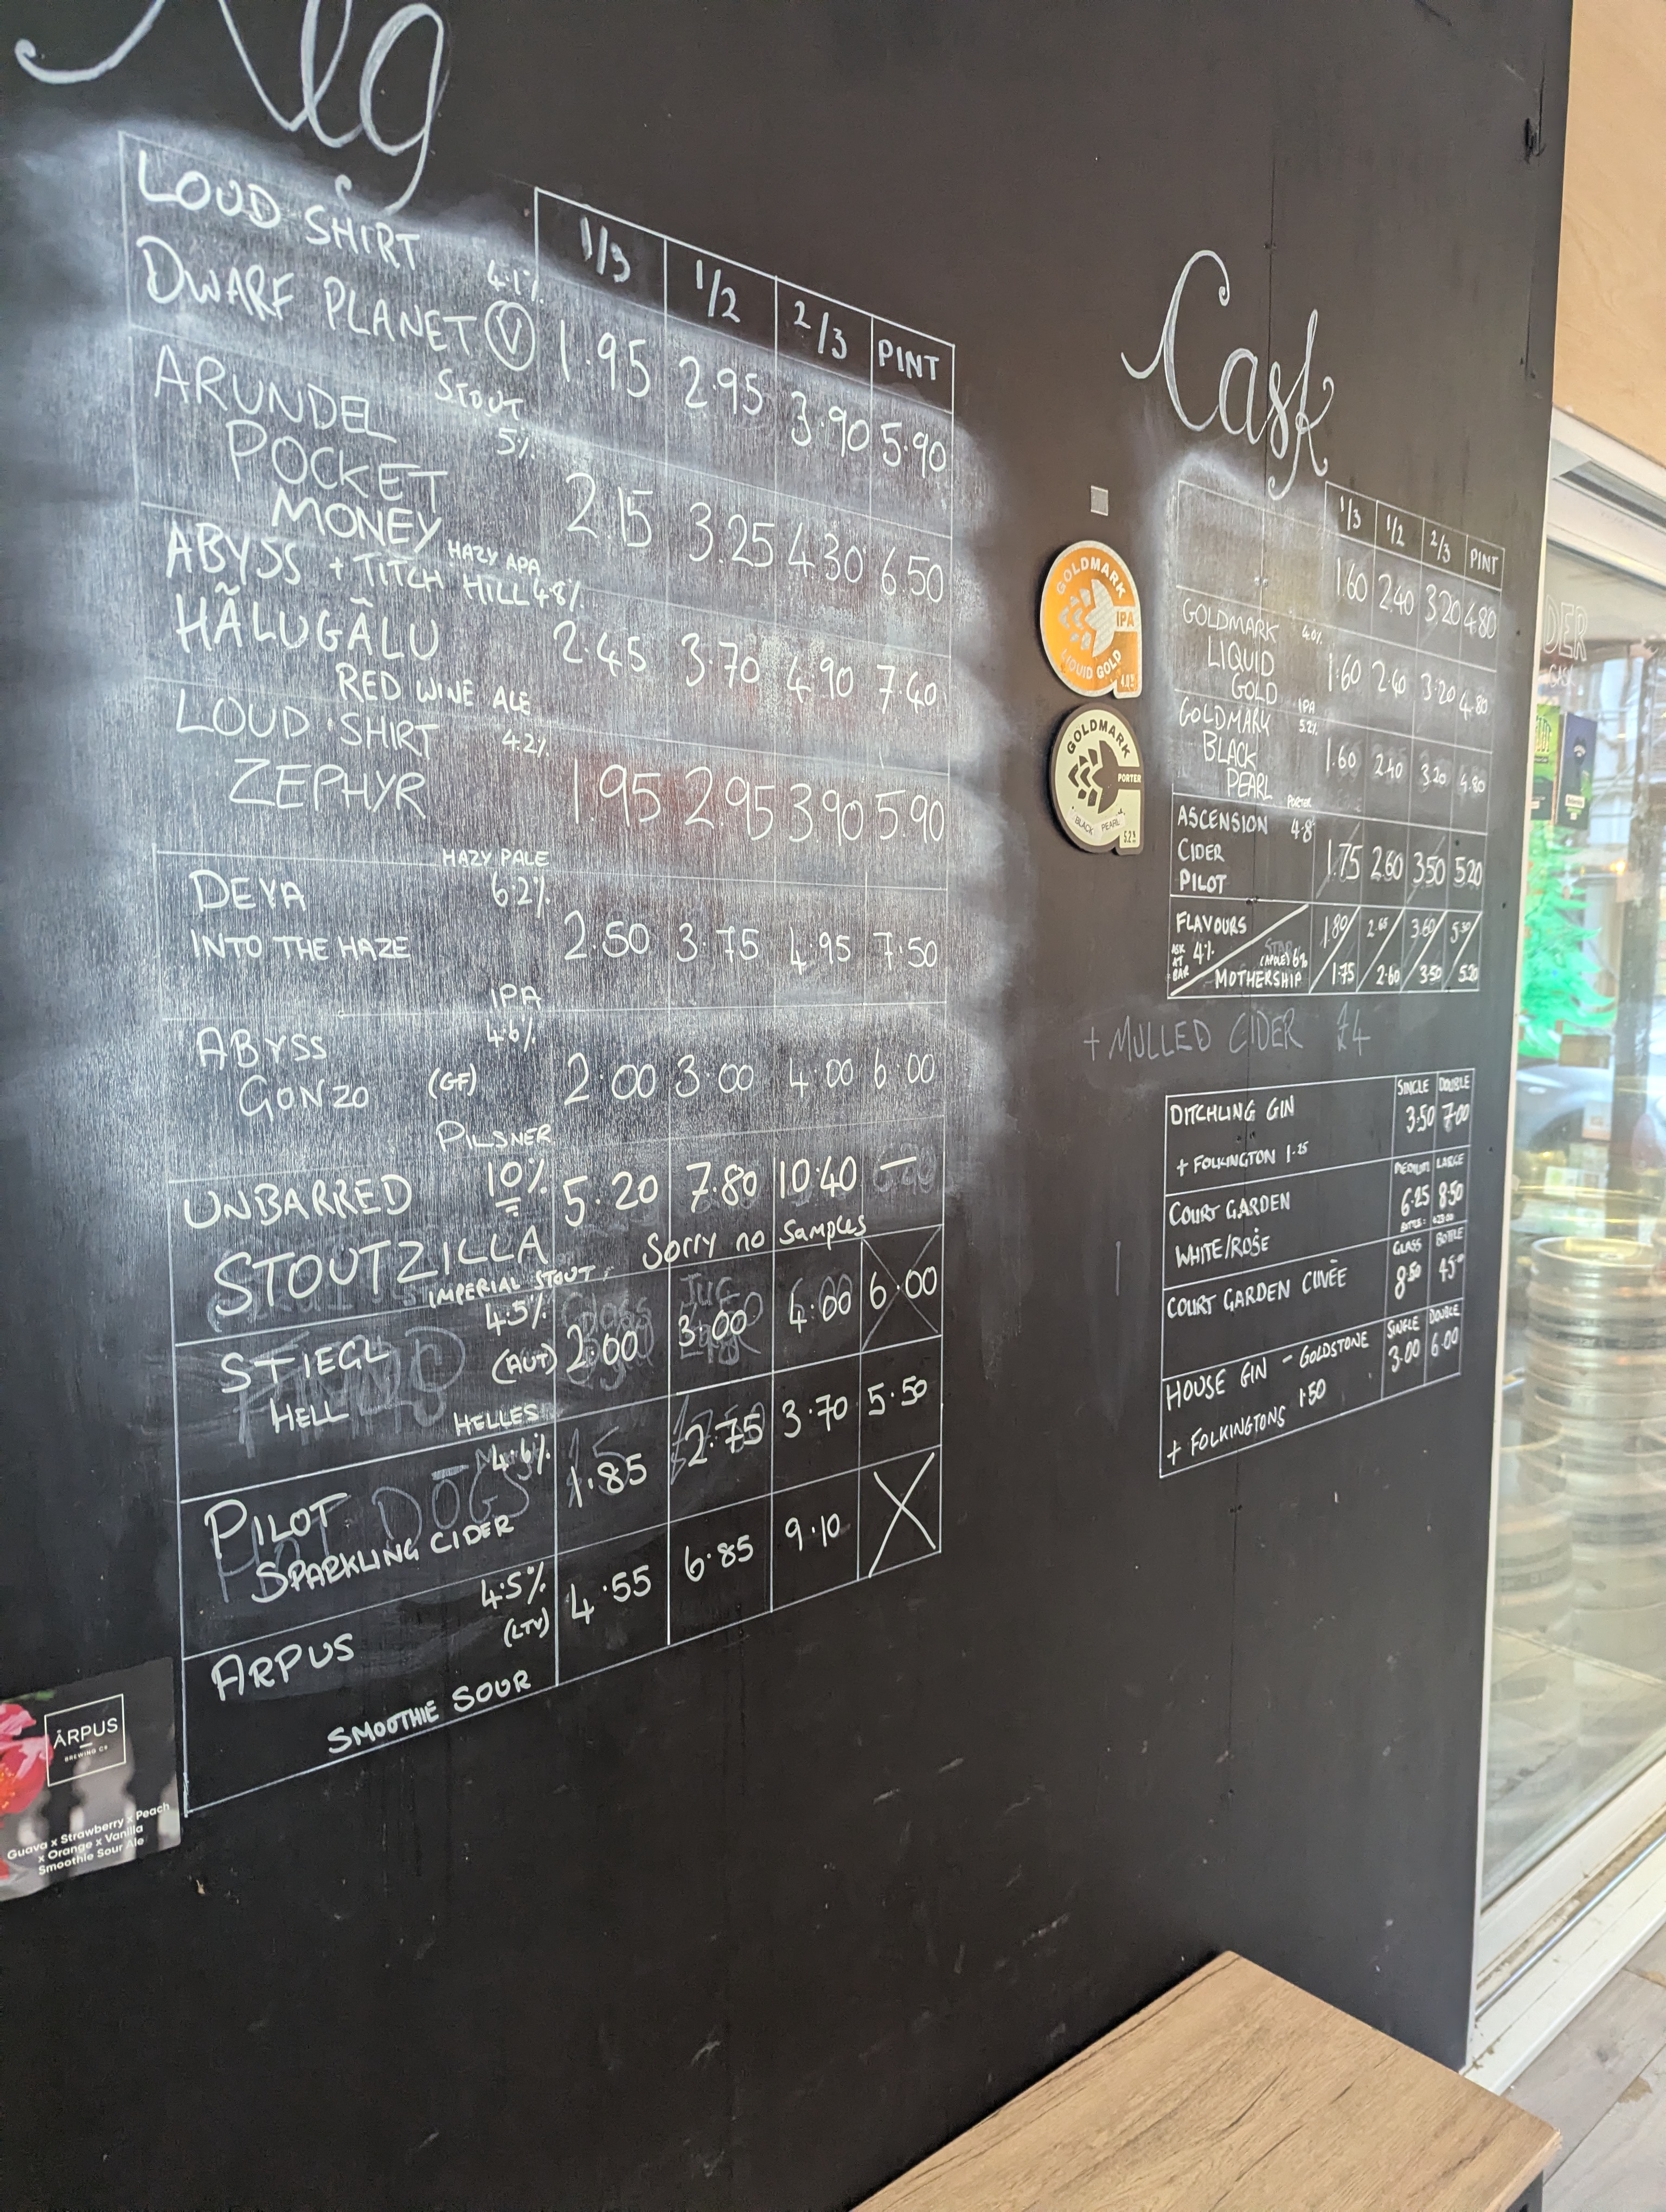 Keg
1/3 1/2 2/3 PINT
LOUD SHIRT 4.1%
DWARF PLANET (V) 1.95 2.95 3.90 5.90
STOUT
ARUNDEL 5%
POCKET
MONEY 2.15 3.25 4.30 6.50
HAZY APA
ABYSS + TITCH HILL 4.8%
HÃLUGÃLU 2.45 3.70 4.90 7.40
RED WINE ALE
LOUD SHIRT 4.2%
ZEPHYR 1.95 2.95 3.90 5.90
HAZY PALE
DEYA 6.2%
INTO THE HAZE 2.50 3.75 4.95 7.50
IPA
ABYSS 4.6%
GONZO (GF) 2.00 3.00 4.00 6.00
PILSNER
UNBARRED 10% 5.20 7.80 10.40 —
STOUTZILLA Sorry no Samples
IMPERIAL STOUT
STIEGL 4.5%
HELL (AUT) 2.00 3.00 4.00 6.00
HELLES
PILOT 4.6%
SPARKLING CIDER 1.85 2.75 3.70 5.50
ARPUS 4.5%
(LTV) 4.55 6.85 9.10 X
SMOOTHIE SOUR
ĀRPUS
BREWING CO
Guava x Strawberry x Peach
x Orange x Vanilla
Smoothie Sour Ale
Cask
1/3 1/2 2/3 PINT
1.60 2.40 3.20 4.80
GOLDMARK 4.0%
LIQUID
GOLD 1.60 2.40 3.20 4.80
IPA
GOLDMARK 5.2%
BLACK
PEARL 1.60 2.40 3.20 4.80
PORTER
ASCENSION 4.8
CIDER
PILOT 1.75 2.60 3.50 5.20
FLAVOURS 1.80 2.65 3.60 5.30
ASK AT BAR 4%
STAR
(APPLE) 6%
MOTHERSHIP 1.75 2.60 3.50 5.20
+ MULLED CIDER £4
SINGLE DOUBLE
DITCHLING GIN 3.50 7.00
+ FOLKINGTON 1.25
MEDIUM LARGE
COURT GARDEN 6.25 8.50
WHITE/ROSE
BOTTLE: £23.00
GLASS BOTTLE
COURT GARDEN CUVÉE 8.50 45.00
SINGLE DOUBLE
HOUSE GIN - GOLDSTONE 3.00 6.00
+ FOLKINGTONS 1.50
GOLDMARK
IPA
LIQUID GOLD
4.0%
GOLDMARK
PORTER
BLACK PEARL
5.2%
DER